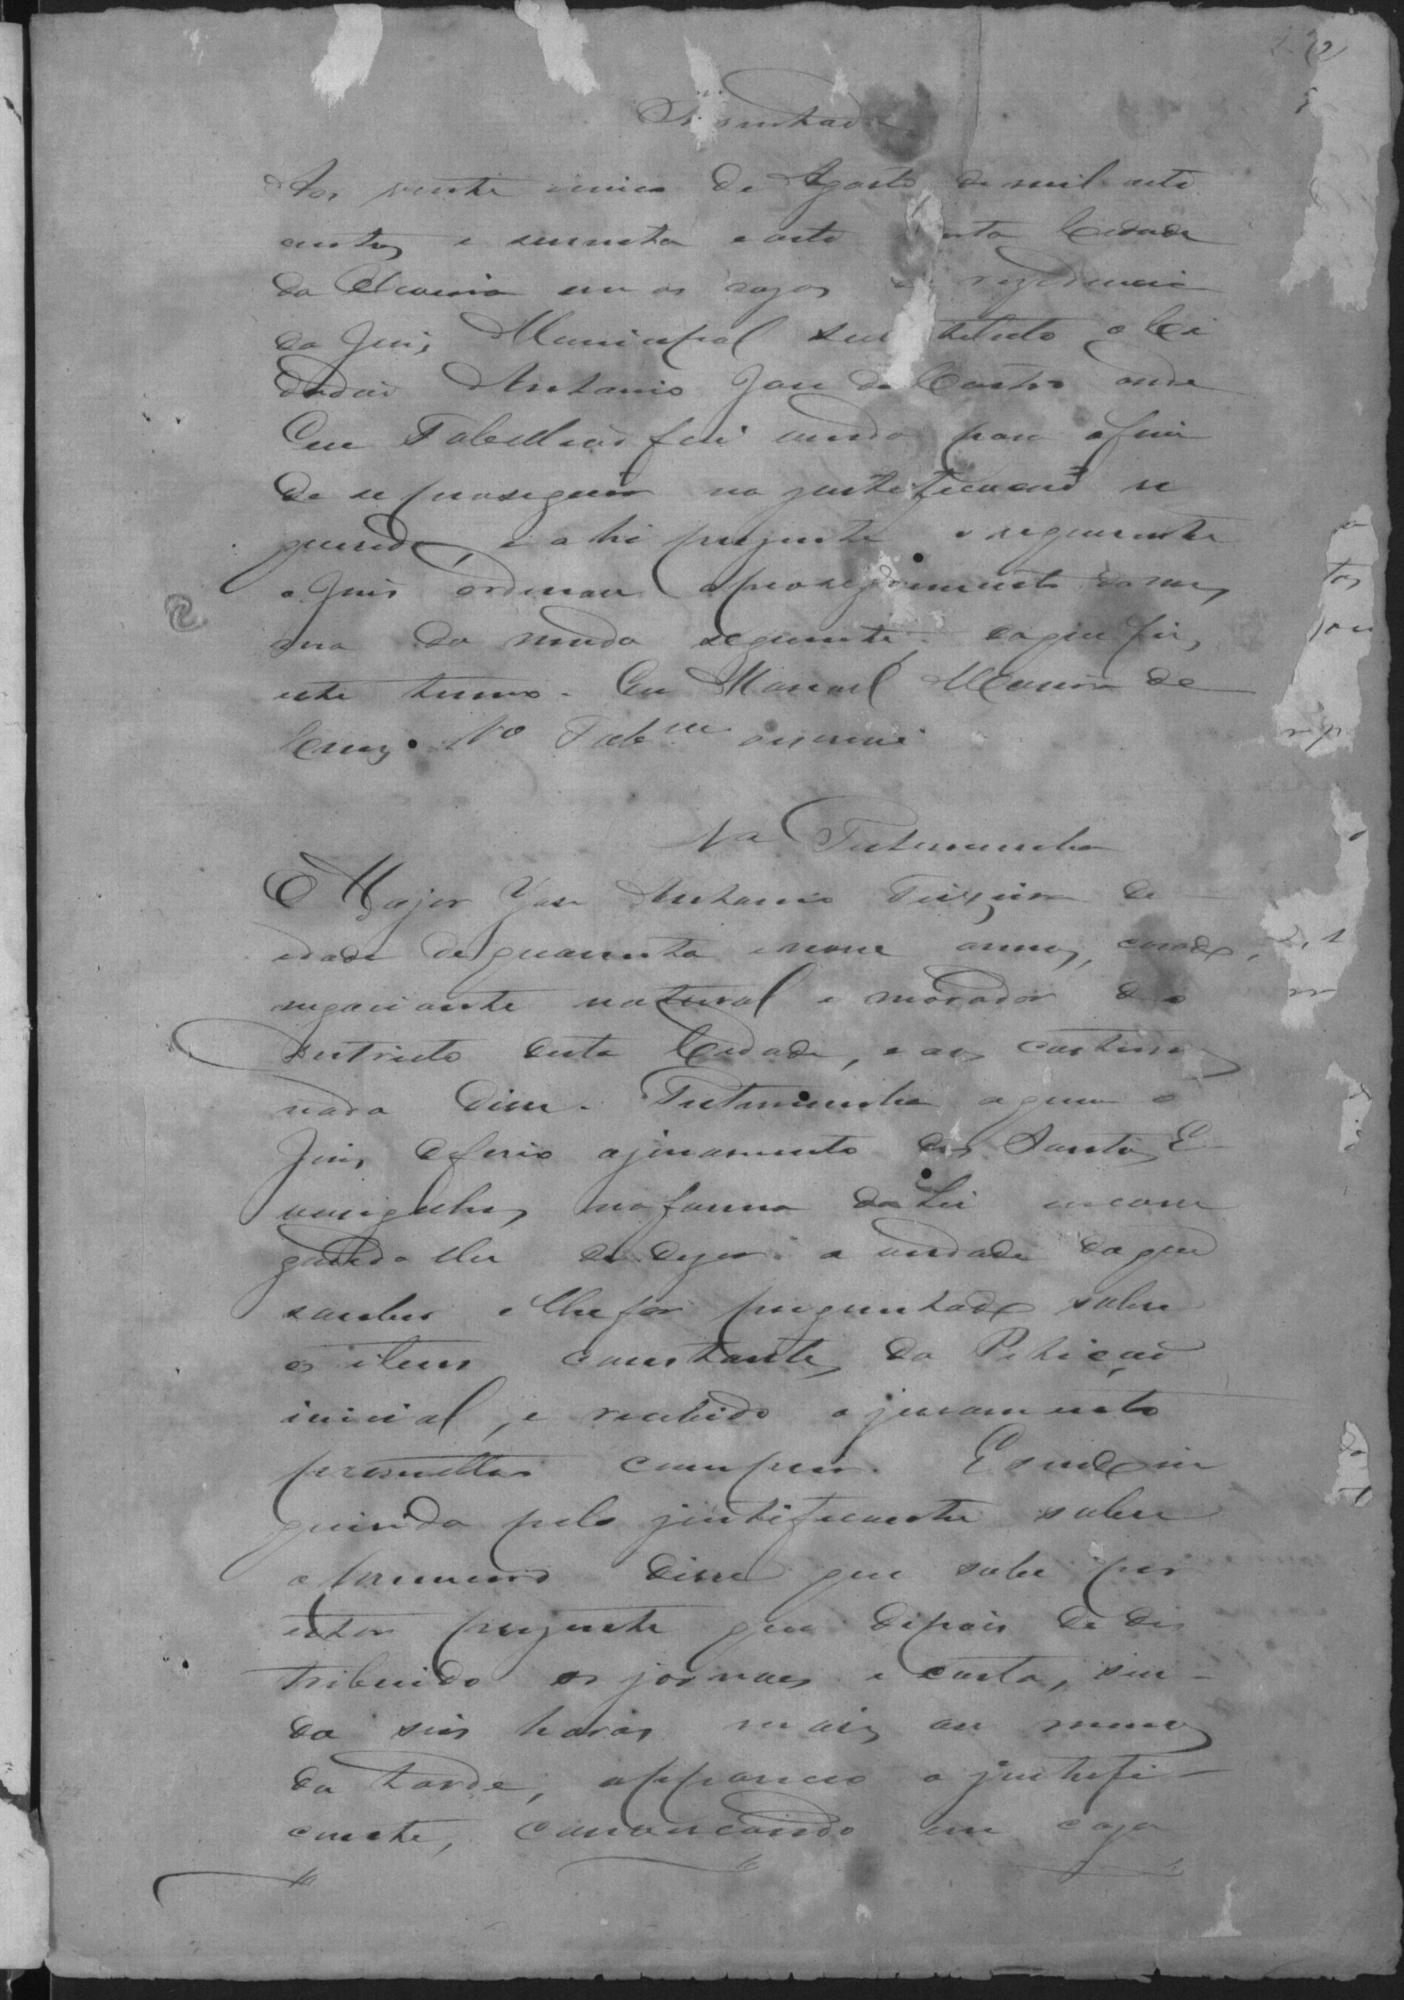 Assentada
Aos vinte cinco de Agosto de mil oito
centos e secenta e oito nesta Cidade
da em as cazas de rezidencia
do Juis Municipal sustituto o Ci
dadão Antonio Joze de Castro onde
Eu Tabellião fui vindo para o fim
de se proseguir na justificacaõ re
querida e ahi prezente o requerente
o Juis ordenou o prosseguimento da mes
ma do modo seguinte: do que fis
este termo. Eu Manoel Moreira da
Cruz. 1º Tab.am escrevi
1ª Testemunha
O Major Joze Antonio Teixeira de
idade de quarenta e nove annos, cazado,
negociante natural e morador do
districto desta Cidade, e aos costumes
nada disse. Testemunha a quem o
Juis deferio o juramento dos Santos E
vangelhos na forma da Lei encarre
gando-lhe de dizer a verdade do que
souber e lhe for perguntado sobre
os itens constantes da Peticaõ
inicial, e recebido o juramento
prometteo cumprir. E sendo in
querida pelo justificante sobre
o primeiro disse que sabe por
estar prezente que depois de dis
tribuido os jornaes e carta, sen-
do seis horas mais ou menos
da tarde, appareceo o justifi-
cante, em caza